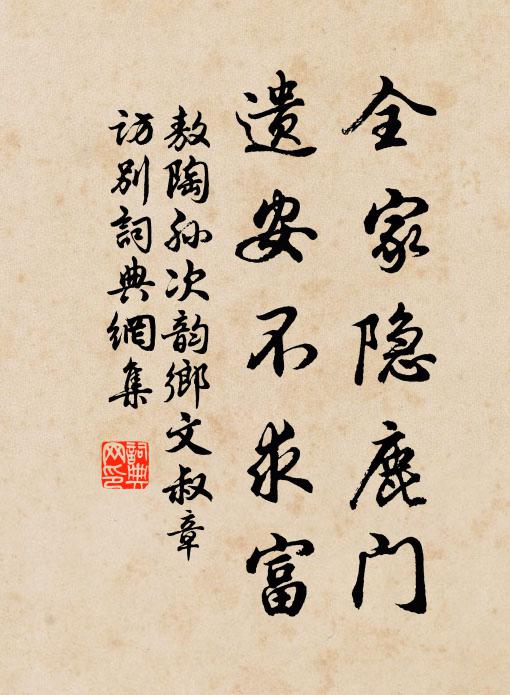 全家隐鹿门
遗安不求富
敖陶孙次韵乡文叔章
访别词典网集
词典网印